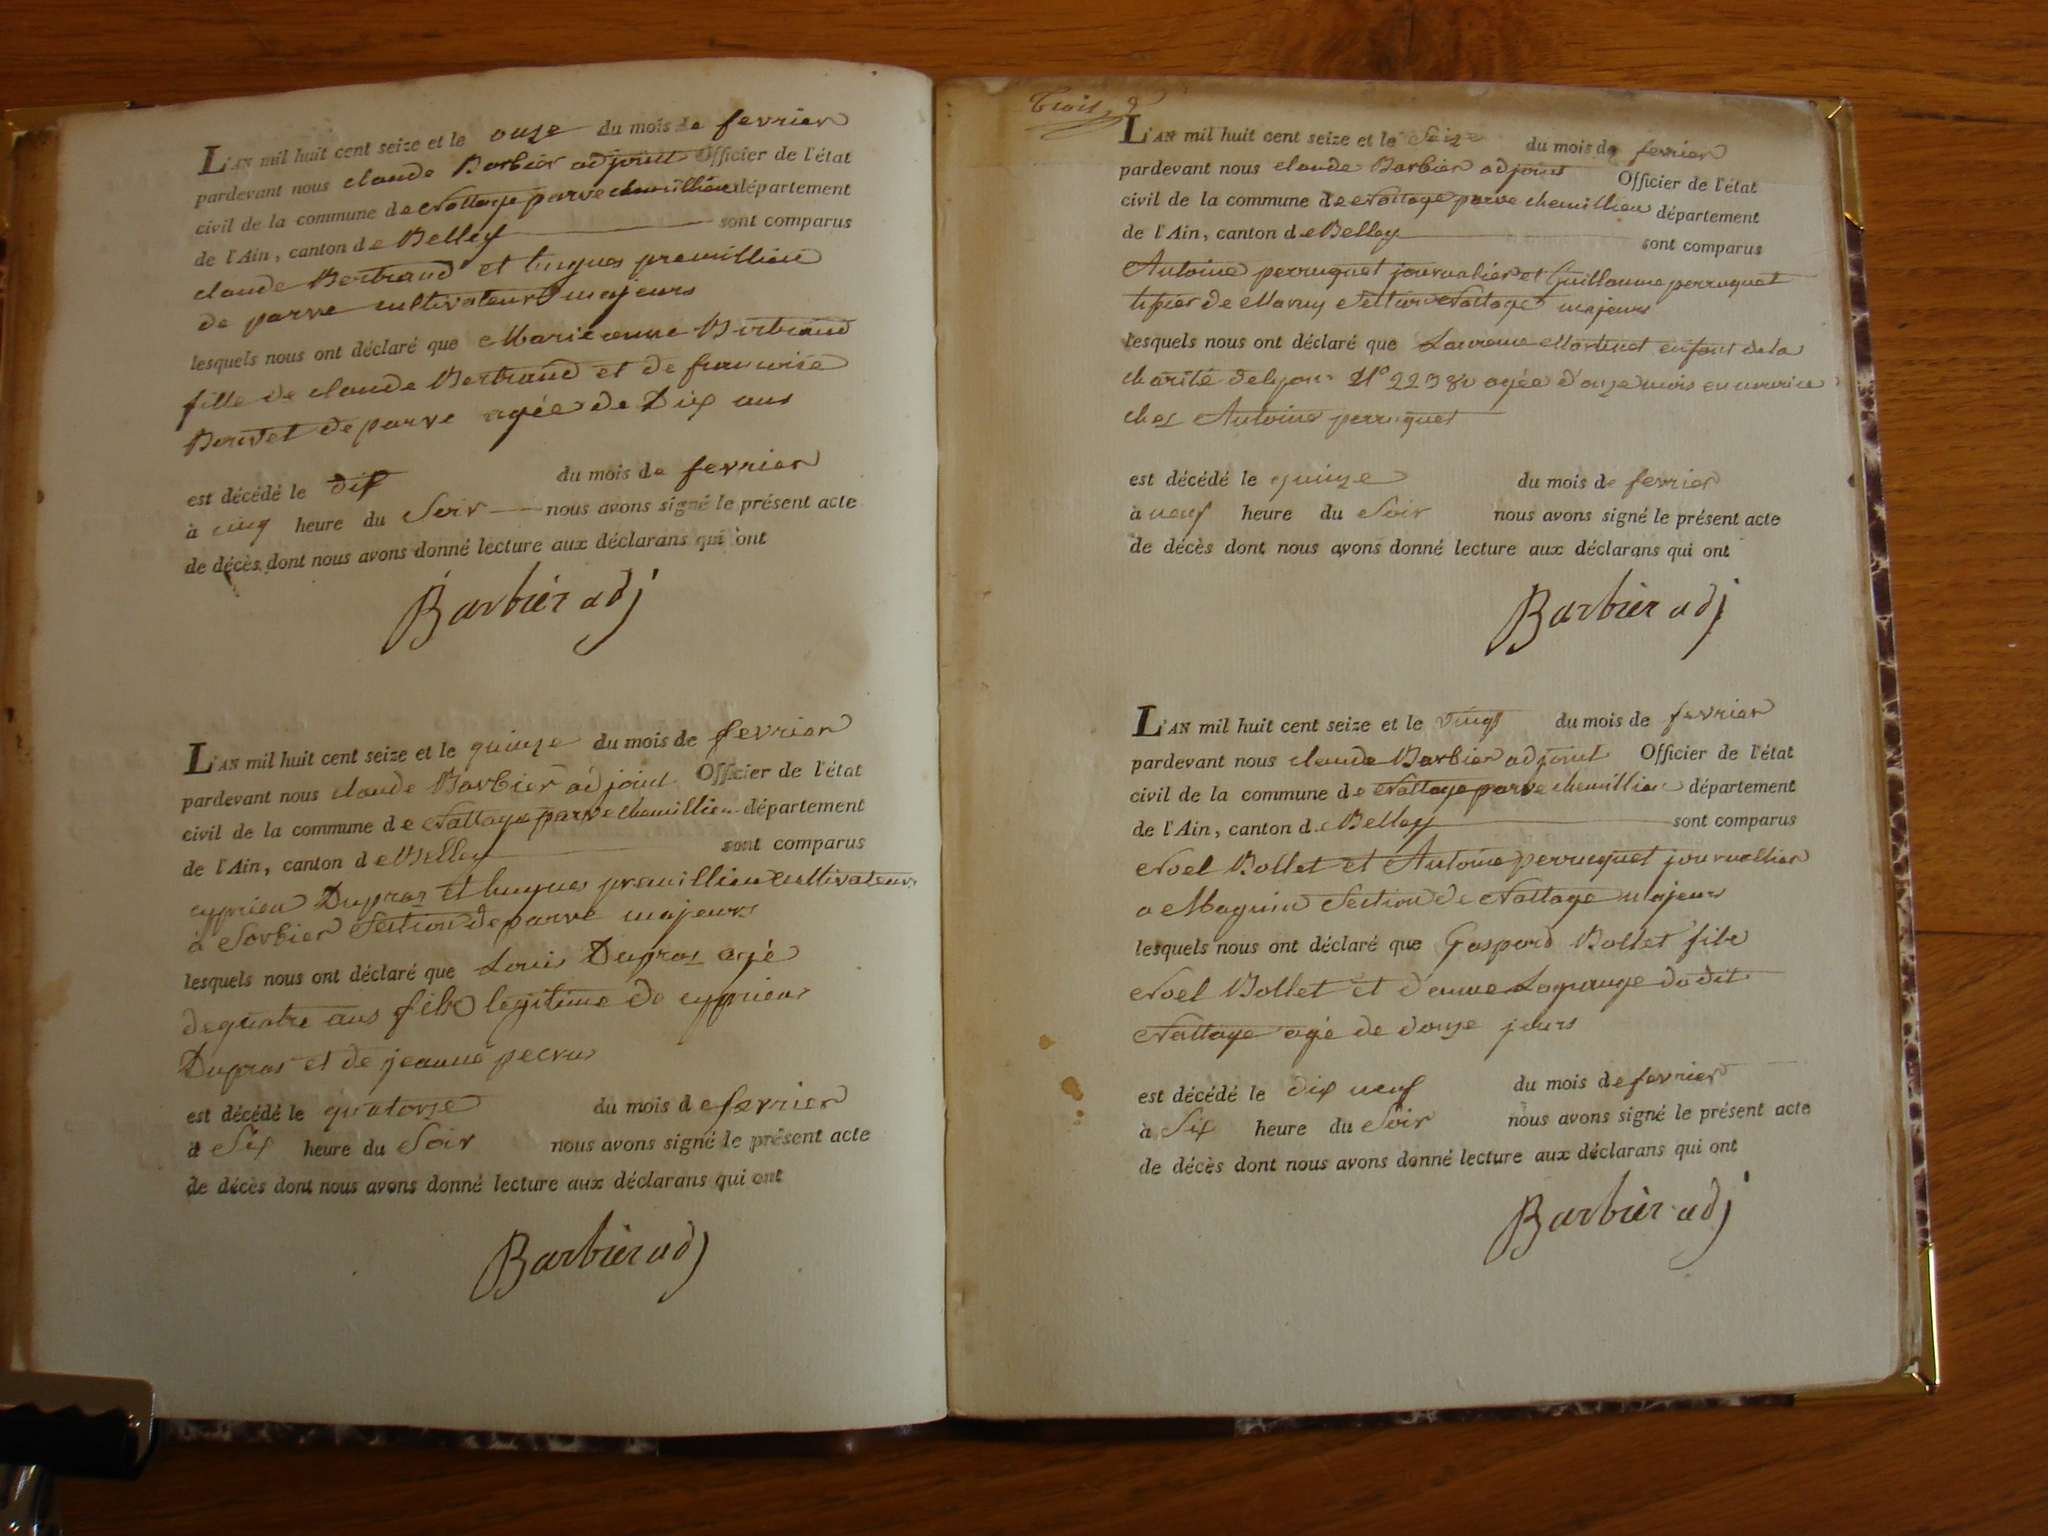 L'AN mil huit cent seize et le onze du mois de fevrier
pardevant nous claude Barbier adjoint Officier de l'état
civil de la commune de Nattage parve chemillieu département
de l'Ain, canton de Belley sont comparus
claude Bertrand et hugues premillieu
de parve cultivateurs majeurs
lesquels nous ont déclaré que Marie anne Bertrand
fille de claude Bertrand et de francoise
de parve agée de Dix ans
est décédé le dix du mois de fevrier
à cinq heure du Soir nous avons signé le présent acte
de décès dont nous avons donné lecture aux déclarans qui ont
Barbier adj
L'AN mil huit cent seize et le quinze du mois de fevrier
pardevant nous claude Barbier adjoint Officier de l'état
civil de la commune de Nattage parve chemillieu département
de l'Ain, canton de Belley sont comparus
cyprien Dupras et hugues premillieu cultivateurs
à Sorbier Section de parve majeurs
lesquels nous ont déclaré que Louis Dupras agé
de quatre ans fils légitime de cyprien
Dupras et de jeanne pecru
est décédé le quatorze du mois de fevrier
à Six heure du Soir nous avons signé le présent acte
de décès dont nous avons donné lecture aux déclarans qui ont
Barbier adj
trois
L'AN mil huit cent seize et le Seize du mois de fevrier
pardevant nous claude Barbier adjoint Officier de l'état
civil de la commune de Nattage parve chemillieu département
de l'Ain, canton de Belley sont comparus
Antoine perruquet journalier et Guillaume perruquet
de Section Nattage majeurs
lesquels nous ont déclaré que Laurence Martinet enfant de la
charité de lyon N° agée d'onze mois en nourice
chez Antoine perruquet
est décédé le quinze du mois de fevrier
à neuf heure du Soir nous avons signé le présent acte
de décès dont nous avons donné lecture aux déclarans qui ont
Barbier adj
L'AN mil huit cent seize et le vingt du mois de fevrier
pardevant nous claude Barbier adjoint Officier de l'état
civil de la commune de Nattage parve chemillieu département
de l'Ain, canton de Belley sont comparus
Noel Bollet et Antoine perruquet journallier
a Magnin Section de Nattage majeurs
lesquels nous ont déclaré que Gaspard Bollet fils
Noel Bollet et d'anne Lagrange du dit
Nattage agé de douze jours
est décédé le dix neuf du mois de fevrier
à Six heure du Soir nous avons signé le présent acte
de décès dont nous avons donné lecture aux déclarans qui ont
Barbier adj